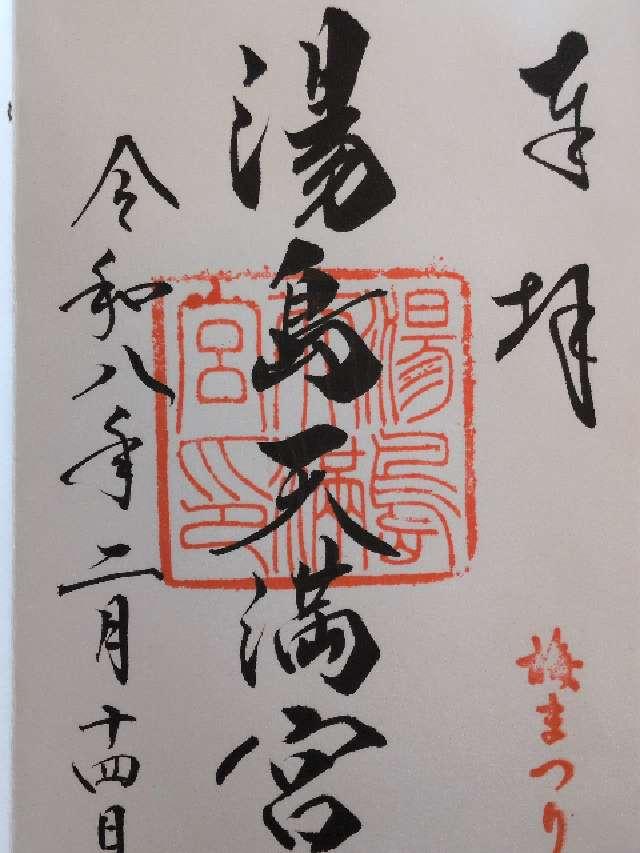 奉拝
梅まつり
湯島天満宮
湯島天満宮印
令和八年二月十四日